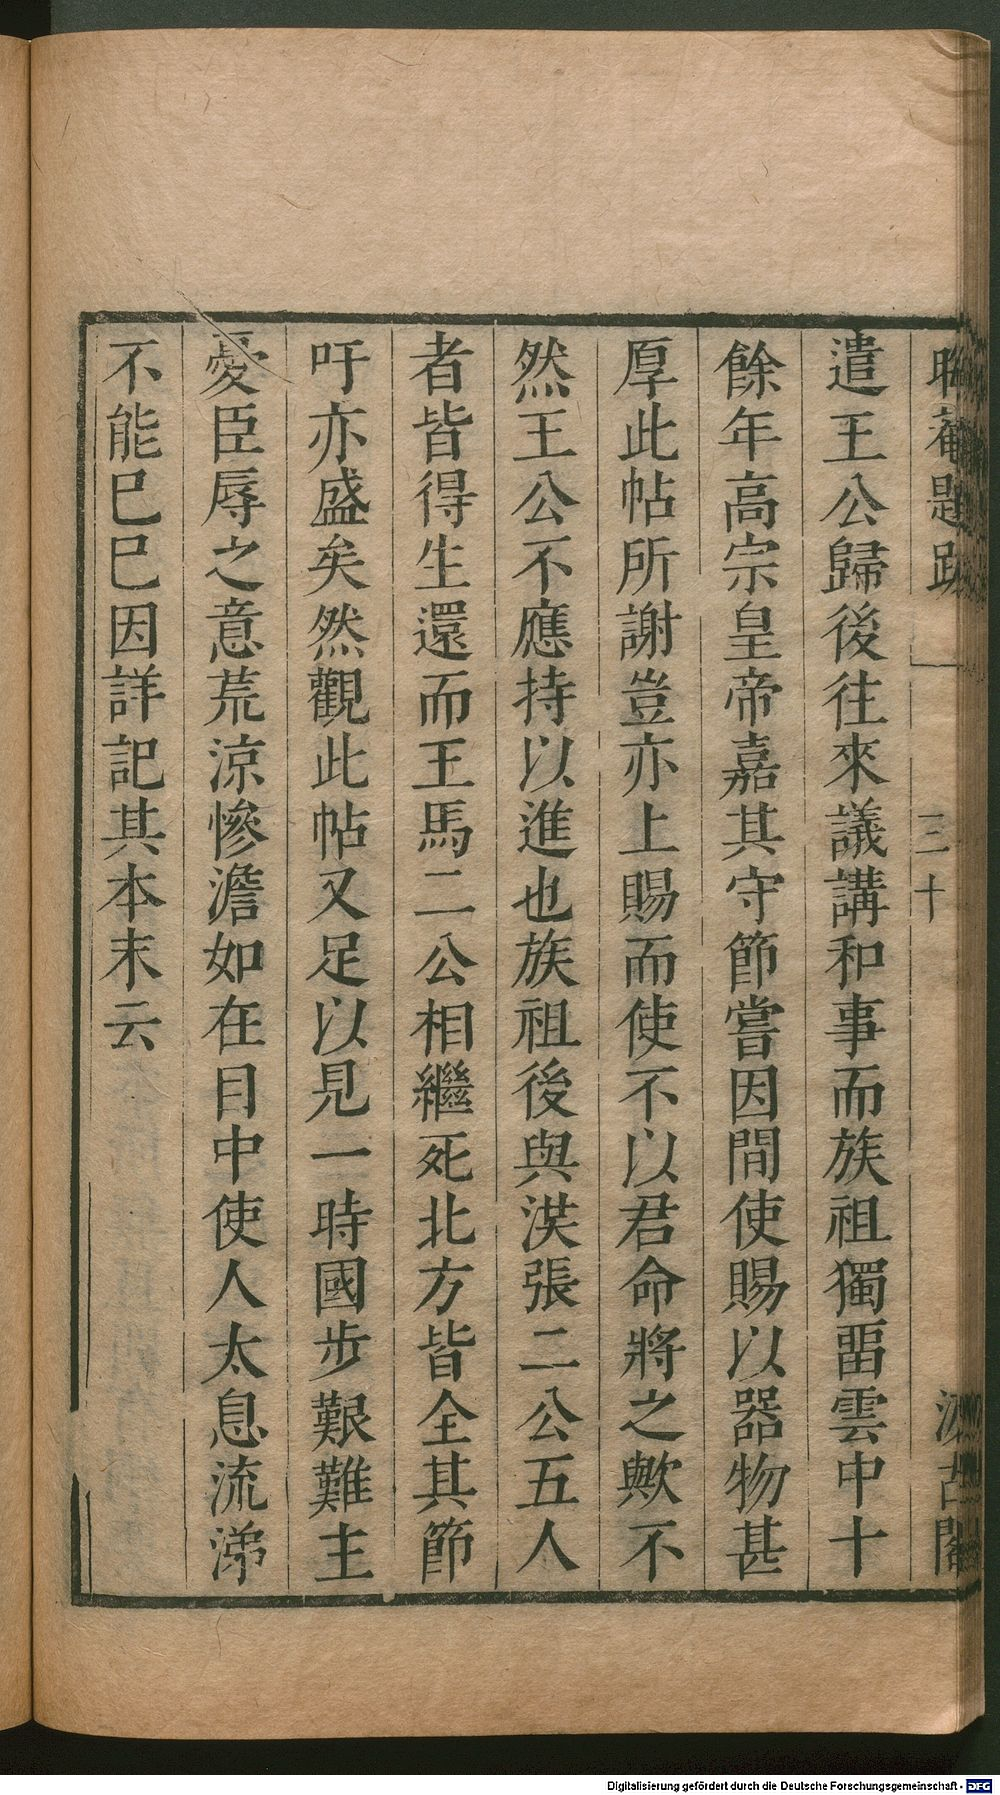 晦菴題跋 一 三十 汲古閣
遣王公歸後往來議講和事而族祖獨畱雲中十
餘年高宗皇帝嘉其守節嘗因間使賜以器物甚
厚此帖所謝豈亦上賜而使不以君命將之歟不
然王公不應持以進也族祖後與洪張二公五人
者皆得生還而王馬二公相繼死北方皆全其節
吁亦盛矣然觀此帖又足以見一時國步艱難主
憂臣辱之意荒涼慘澹如在目中使人太息流涕
不能已已因詳記其本末云
Digitalisierung gefördert durch die Deutsche Forschungsgemeinschaft - DFG